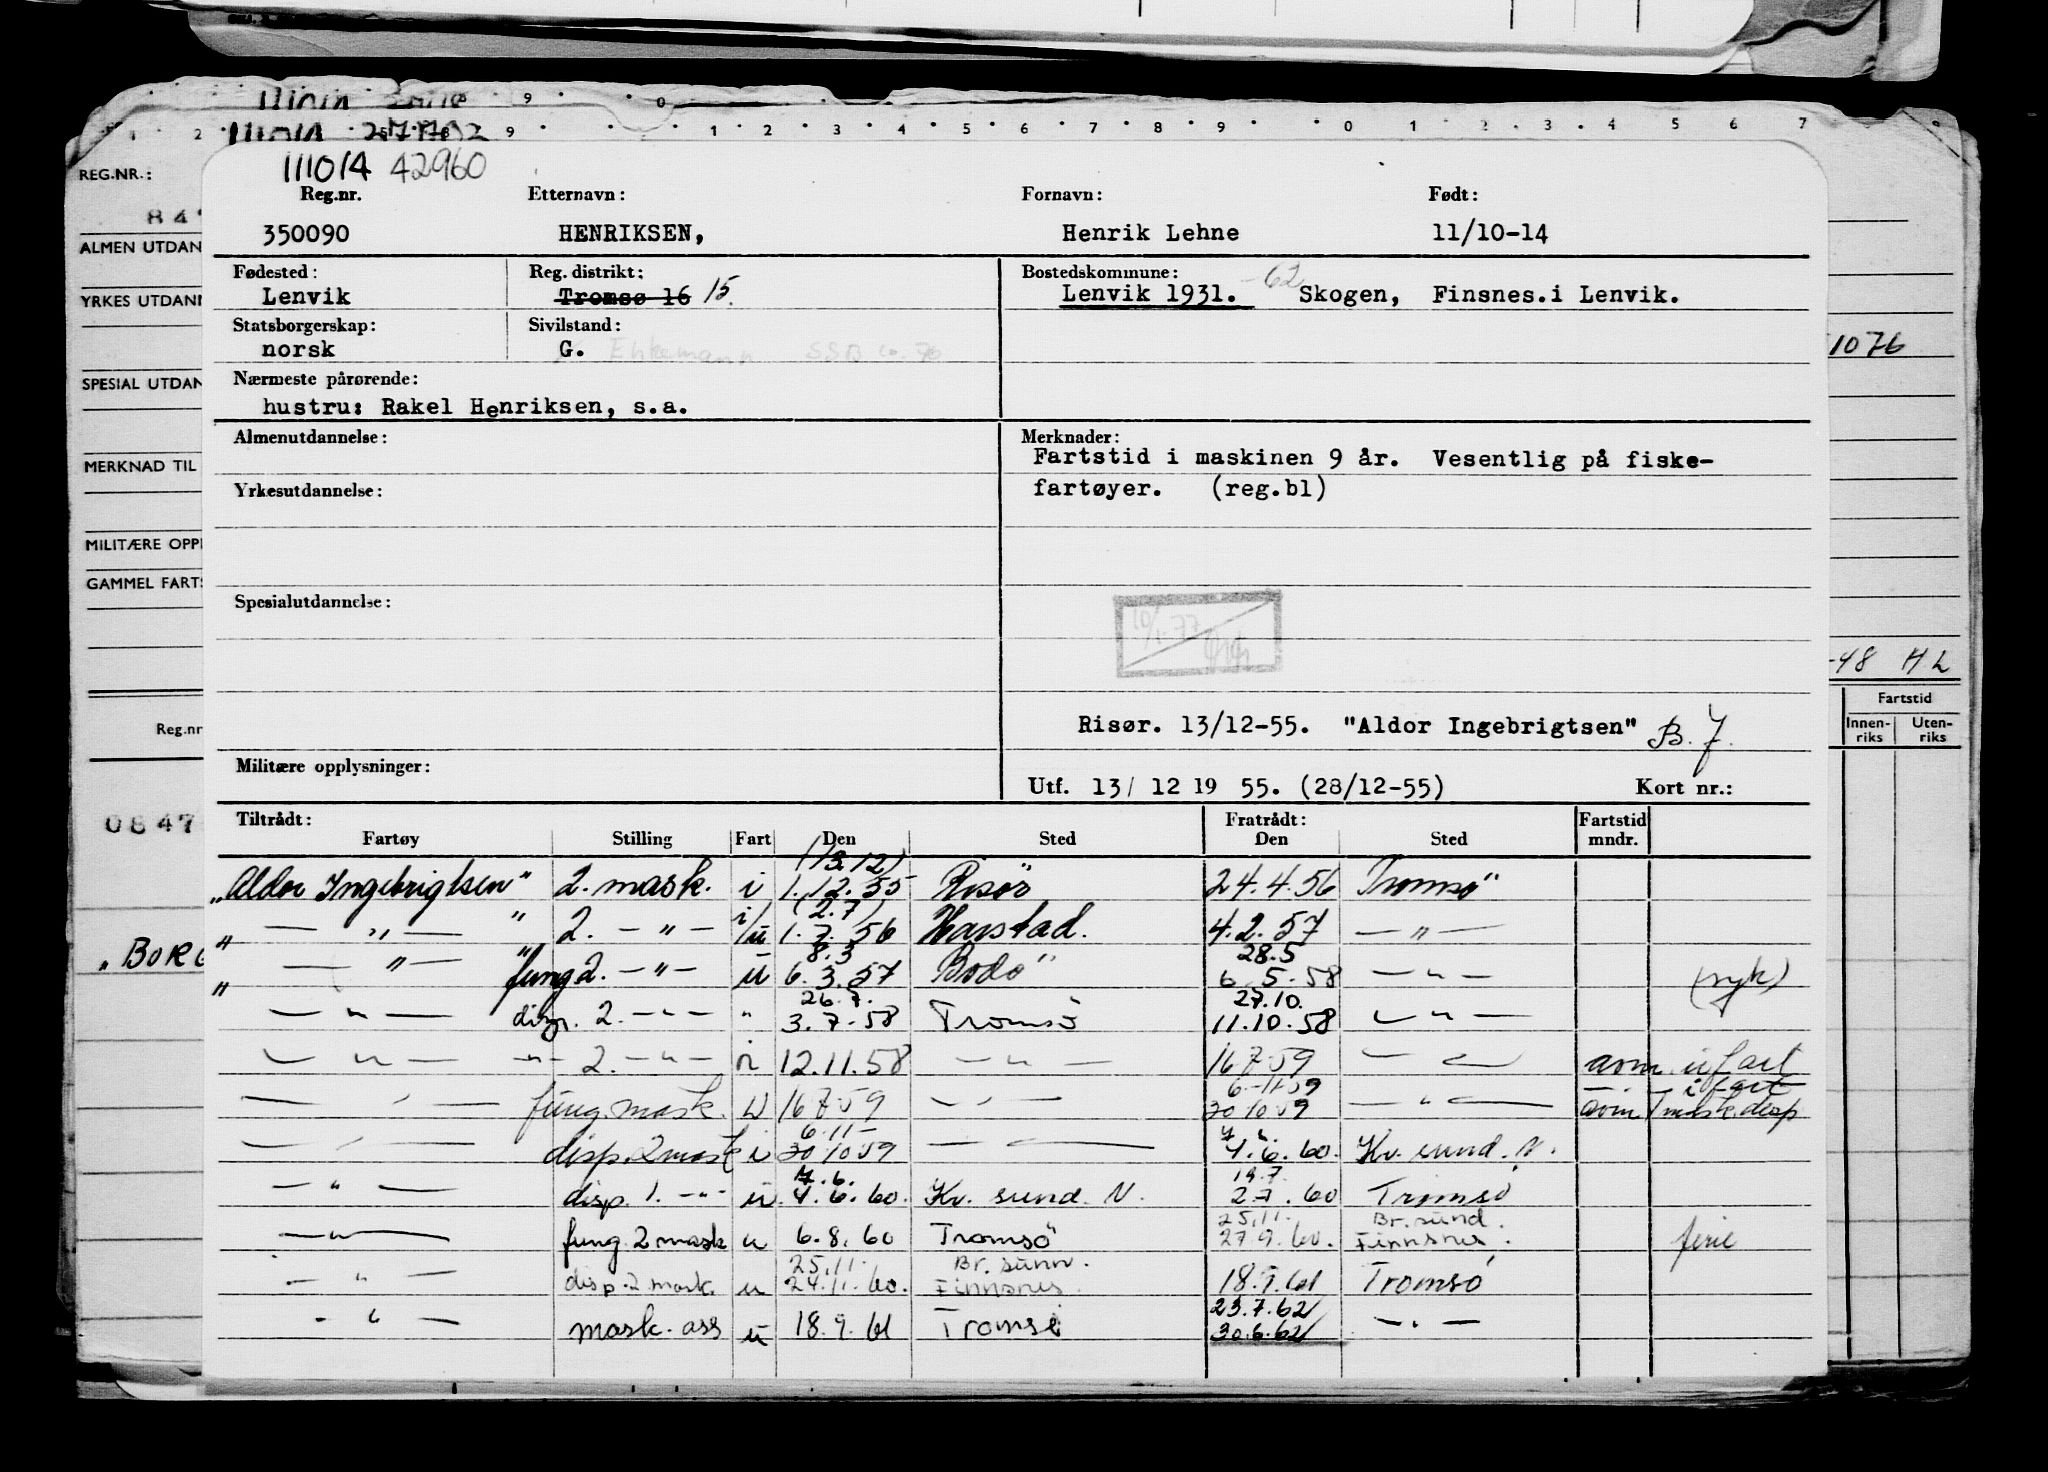 111014 42960
Reg.nr. Etternavn: Fornavn: Født:
350090 HENRIKSEN, Henrik Lehne 11/10-14
Fødested: Reg. distrikt: Bostedskommune:
Lenvik Tromsø 16 15. Lenvik 1931. -62 Skogen, Finsnes.i Lenvik.
Statsborgerskap: Sivilstand:
norsk G.
Nærmeste pårørende:
hustru: Rakel Henriksen, s.a.
Almenutdannelse: Merknader:
Fartstid i maskinen 9 år. Vesentlig på fiske-
Yrkesutdannelse: fartøyer. (reg.bl)
Spesialutdannelse:
10/1-77
Risør. 13/12-55. "Aldor Ingebrigtsen" B.J.
Militære opplysninger:
Utf. 13/ 12 19 55. (28/12-55) Kort nr.:
Tiltrådt: Fratrådt: Fartstid
Fartøy Stilling Fart Den Sted Den Sted mndr.
(13.12)
"Aldor Ingebrigtsen" 2. mask. i 1.12.55 Risör 24.4.56 Tromsö
(2.7)
" — " — " 2. — " — i/u 1.7.56 Harstad. 4.2.57 — " —
8.3 28.5
" — " — " fung 2. — " — u 6.3.57 Bodö 6.5.58 — " — (syk)
26.7. 27.10.
— " — disp. 2. — " — " 3.7.58 Tromsö 11.10.58 — " —
— " — — " — 2. — " — i 12.11.58 — " — 16 7 59 — " — avm. u fart
6-11-59 i fart
— " — fung. mask. u 16 7 59 — " — 30 10 59 — " — avm mask. disp
6-11-
— " — disp. 2 mask i 30 10 59 — " — 4.6.60. Kv. sund. N.
7.6. 19.7.
— " — disp. 1. — " — u 4.6.60. Kv. sund. N. 2.7.60 Tromsö
25.11. Br. sund.
— " — fung. 2 mask u 6.8.60 Tromsö 27.9.60. Finnsnes. ferie
25.11. Br. sunn.
— " — disp. 2 mask. u 24.11.60. Finnsnes. 18.9.61 Tromsö
23.7.62
— " — mask. ass u 18.9.61 Tromsö 30.6.62 — " —
REG.NR.:
847
ALMEN UTDAN
YRKES UTDANN
SPESIAL UTDAN
MERKNAD TIL
MILITÆRE OPP
GAMMEL FARTS
Reg.nr
0847
"BORG
1076
-48 HL
Fartstid
Innen-riks Uten-riks